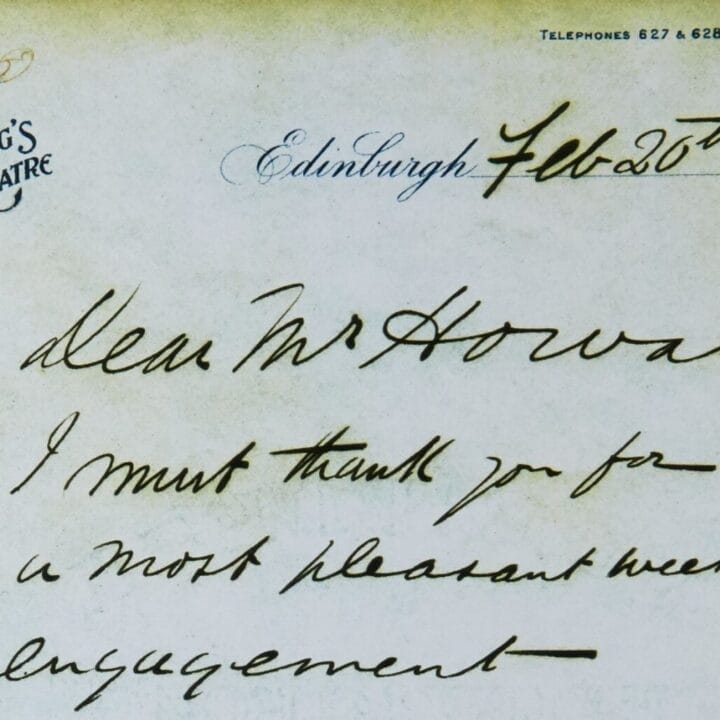 TELEPHONES 627 & 628
G'S
ATRE
Edinburgh Feb 20th
Dear Mr Howa
I must thank you for
a most pleasant wee
engagement —